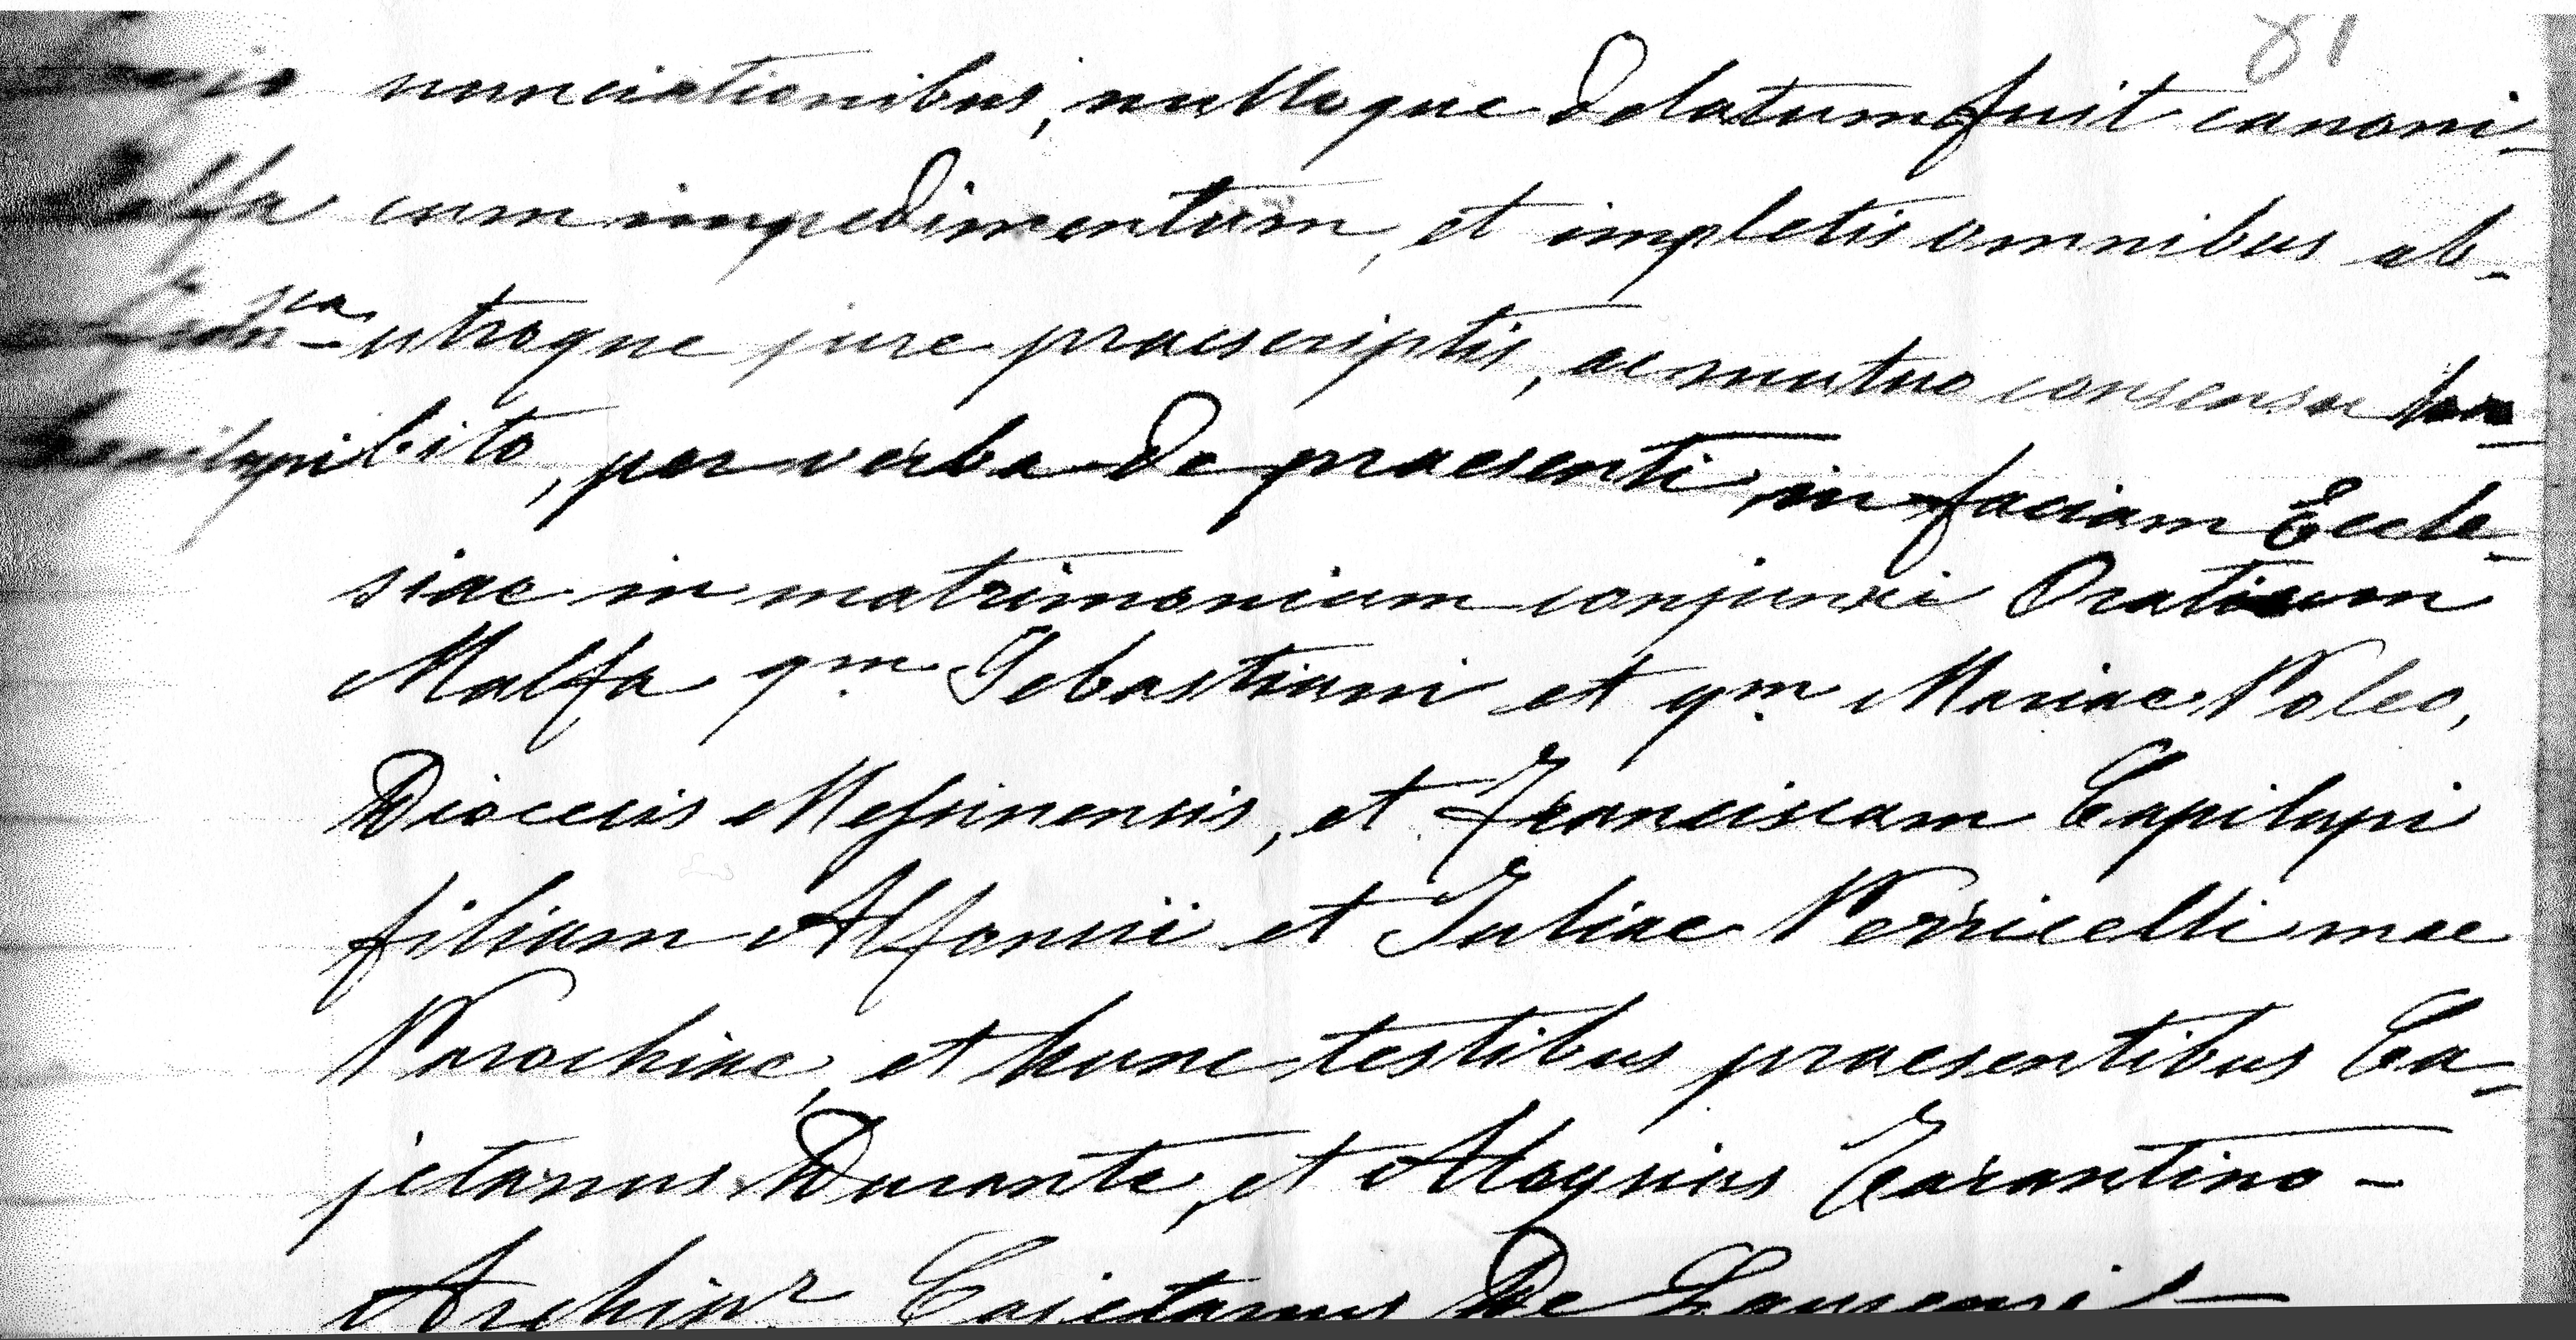 81
nunciationibus, nulloque delatum fuit canoni-
cum impedimentum, et impletis omnibus ab-
utroque jure praescriptis, ac mutuo consensu
bito, per verba de praesenti in faciam Eccle-
siae in matrimonium conjunxi Oratium
Malfa qm Sebastiani et qm Mariae Poleo,
Diocesis Messinensis, et Franciscam Capilupi
filiam Alfonsii et Juliae Perricelli mae
Parochiae, et hunc testibus praesentibus Ca-
jetanus Durante, et Aloysius Tarantino -
Archipr Cajetanus De